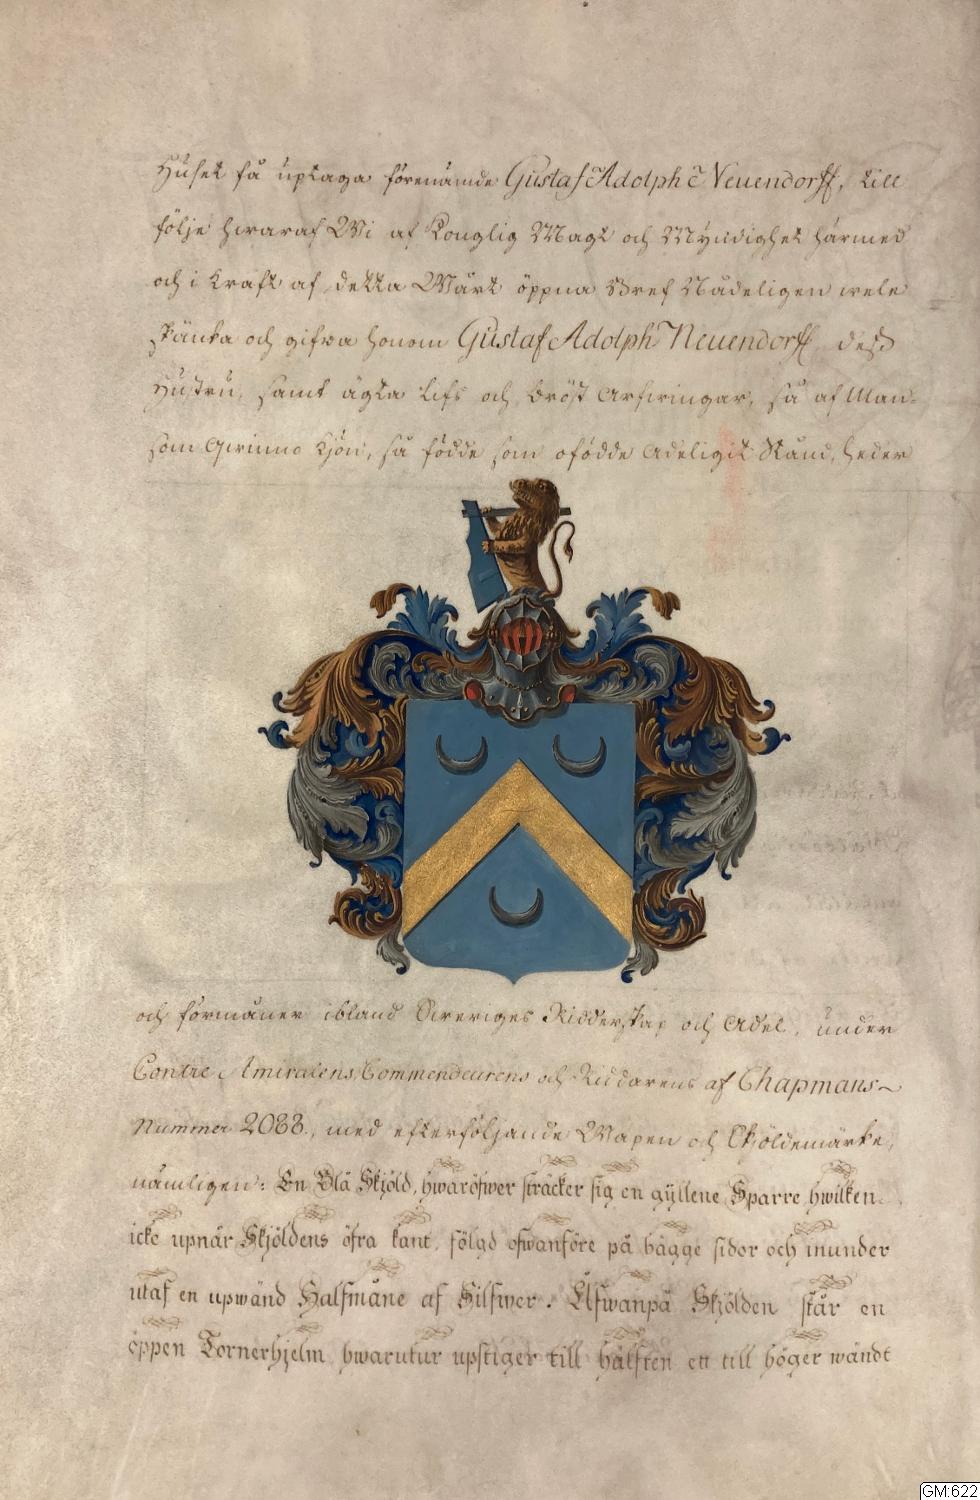 Huset få uptaga förenämde Gustaf Adolph Neuendorff, till
följe hwaraf Wi af Konglig Magt och Myndighet härmed
och i kraft af detta Wårt öppna Bref Nådeligen wele
skänka och gifwa honom Gustaf Adolph Neuendorff, dess
Hustru, samt ägta Lifs och Bröst Arfwingar, så af Man-
som Qwinno Kjön, så födde som ofödde Adeligit Stånd, heder
och förmåner ibland Sweriges Ridderskap och Adel, under
Contre Amiralens, Commendeurens och Riddarens af Chapmans
Nummer 2088., med efterföljande Wapen och Skjöldemärke,
nämligen: En Blå Skjöld, hwaröfwer sträcker sig en gyllene Sparre, hwilken
icke upnår Skjöldens öfra kant, fölgd ofwanföre på bägge sidor och inunder
utaf en upwänd Halfmåne af Silfwer. Ofwanpå Skjölden står en
öppen Tornerhjelm, hwarutur upstiger till hälften ett till höger wändt
GM:622